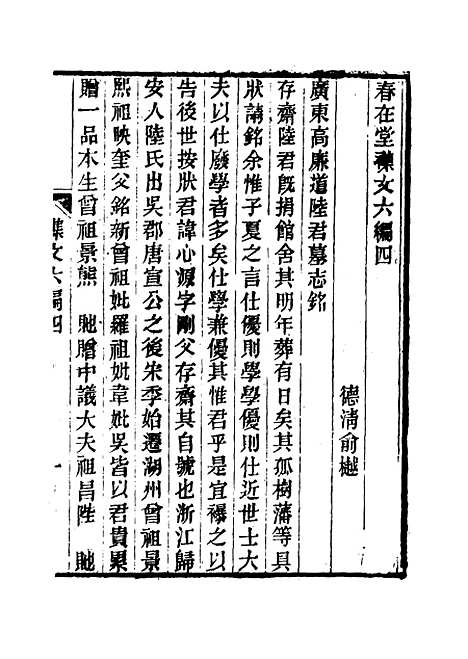 春在堂襍文六編四
德淸俞樾
廣東高廉道陸君墓志銘
存齋陸君旣捐館舍其明年葬有日矣其孤樹藩等具
狀請銘余惟子夏之言仕優則學學優則仕近世士大
夫以仕廢學者多矣仕學兼優其惟君乎是宜襮之以
告後世按狀君諱心源字剛父存齋其自號也浙江歸
安人陸氏出吳郡唐宣公之後宋季始遷湖州曾祖景
熙祖映奎父銘新曾祖妣羅祖妣韋妣吳皆以君貴累
贈一品本生曾祖景熊 貤贈中議大夫祖昌陞 貤
襍文六編四 一